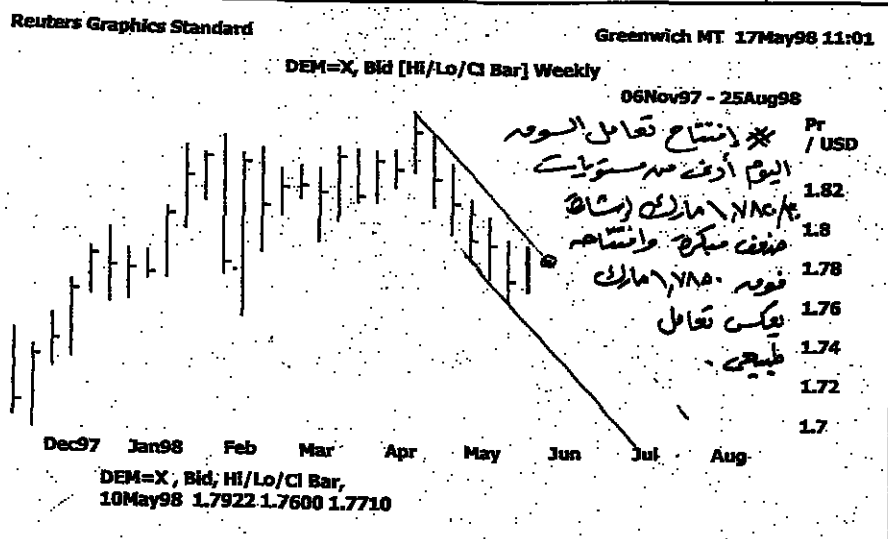 Reuters Graphics Standard
Greenwich MT 17May98 11:01
DEM=X, Bid [Hi/Lo/Cl Bar] Weekly
06Nov97 - 25Aug98
Pr
/ USD
※ إفتتاح تعامل السوق
اليوم أدنى من مستويات
١,٧٨٥/٣٠ مارك إشارة
ضعف مبكرة وافتتاحه
فوق ١,٧٨٥٠ مارك
يعكس تعامل
طبيعي .
1.82
1.8
1.78
1.76
1.74
1.72
1.7
Dec97 Jan98 Feb Mar Apr May Jun Jul Aug
DEM=X , Bid, Hi/Lo/Cl Bar,
10May98 1.7922 1.7600 1.7710